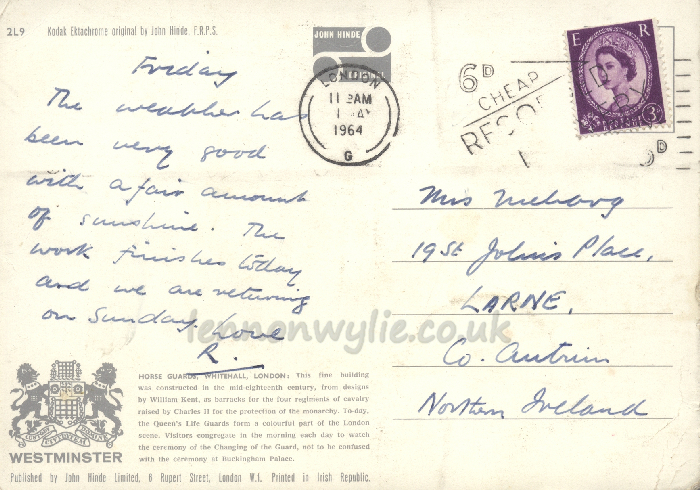 2L9 Kodak Ektachrome original by John Hinde, F.R.P.S.
JOHN HINDE
ORIGINAL
Friday
The weather has
been very good
with a fair amount
of sunshine. The
work finishes today
and we are returning
on Sunday. Love
R.
LONDON
11 AM
1964
G
6D
CHEAP
E R
3D
Mrs
19 St Johns Place,
LARNE,
Co. Antrim
Northern Ireland
lennonwylie.co.uk
WESTMINSTER
HORSE GUARDS, WHITEHALL, LONDON: This fine building
was constructed in the mid-eighteenth century, from designs
by William Kent, as barracks for the four regiments of cavalry
raised by Charles II for the protection of the monarchy. To-day,
the Queen's Life Guards form a colourful part of the London
scene. Visitors congregate in the morning each day to watch
the ceremony of the Changing of the Guard, not to be confused
with the ceremony at Buckingham Palace.
Published by John Hinde Limited, 8 Rupert Street, London W.1. Printed in Irish Republic.